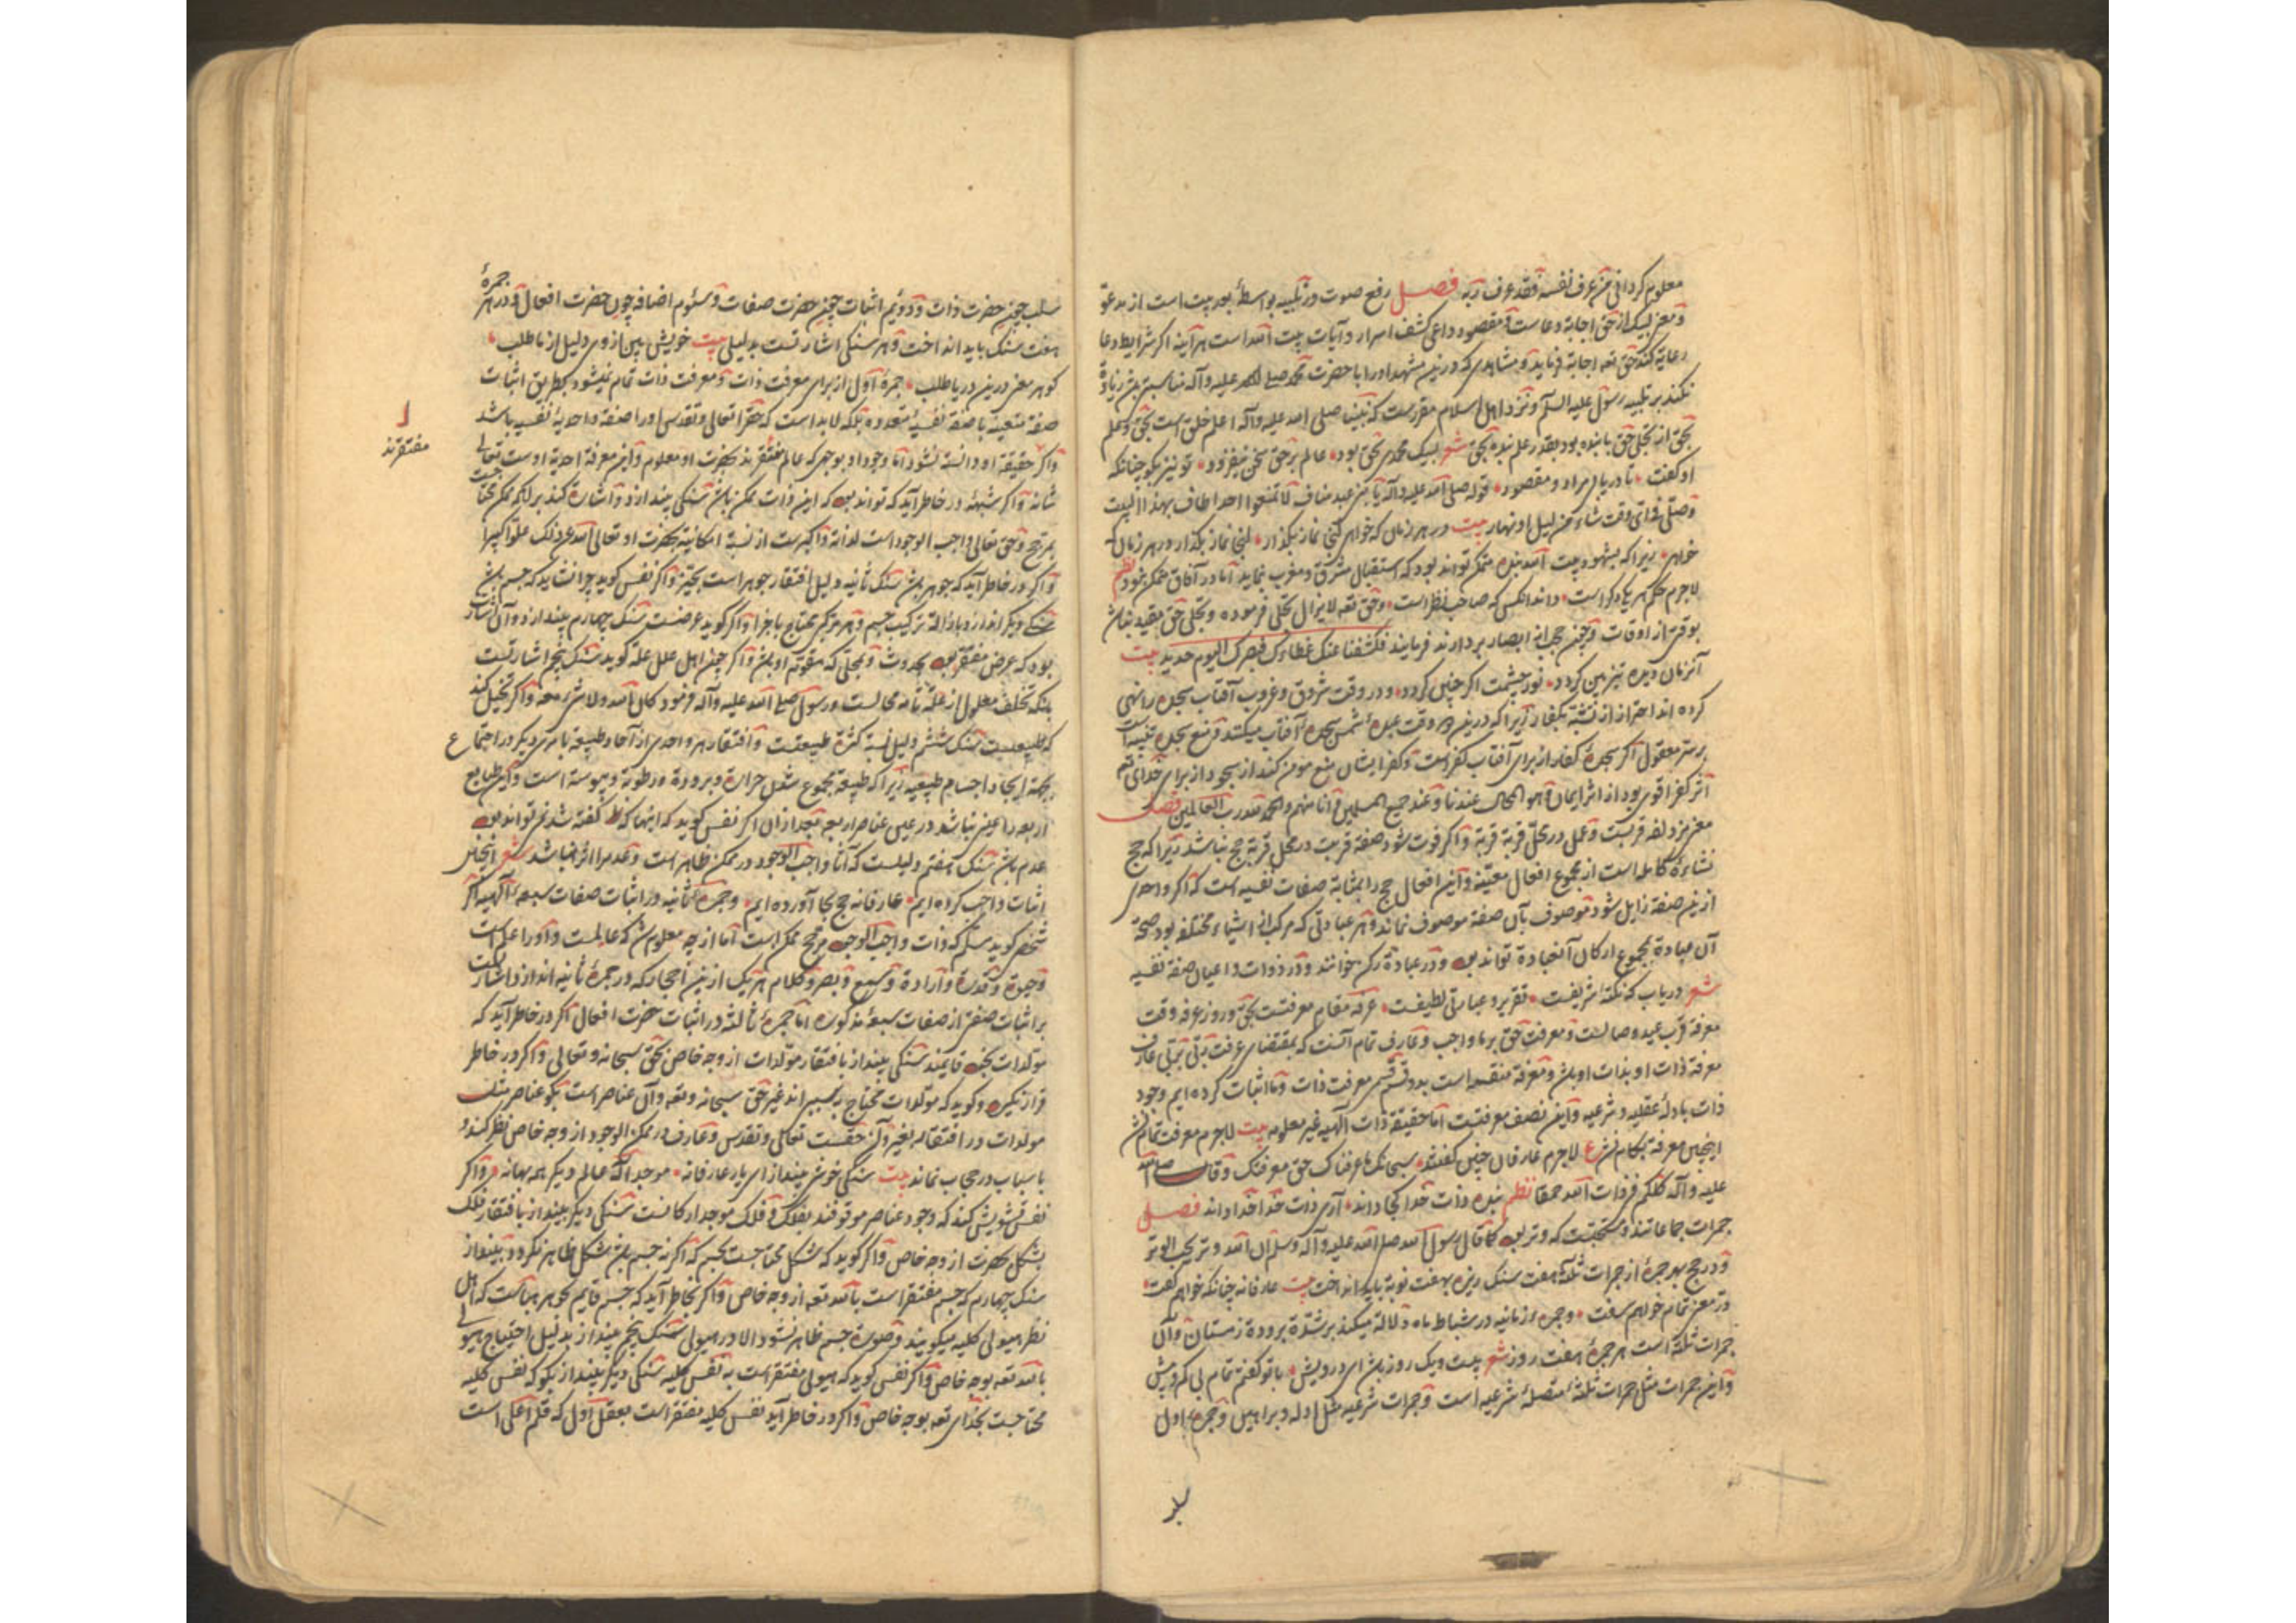 معلوم کردانی من عرف نفسه فقد عرف ربه فصل رفع صوت در تلبیه بواسطهٔ بعد بیت است از مدعوّ
و معنی لبیک از حق اجابة دعاست و مقصود داعی کشف اسرار و آیات بیت الله است هر آینه اکر شرایط دعا
رعایة کند حق تعه اجابة فرماید و مشاهدی که درین مشهد او را با حضرت محمد صلی الله علیه وآله مناسبتی زیادة
نکند بر تلبیه رسول علیه السلم و نزد اهل اسلام مقررست که نبینا صلی الله علیه وآله اعلم خلق است بحق و علم
بحق از تجلی حق با بنده بود بقدر علم بنده بحق شعر لبیک محمدی بحق بود عالم بر حق سخن نیفزود تو نیز بکو چنانکه
او کفت تا دریابی مراد و مقصود قوله صلی الله علیه وآله یا بنی عبد مناف لا تمنعوا احدا طاف بهذا البیت
وصلی فی ای وقت شاء من لیل او نهار بیت در هر زمان که خواهی کنی نماز بکذار نماز بکذار در هر زمان که
خواهی زیرا که بشهود بیت الله بنده متمکن تواند بود که استقبال مشرق و مغرب نماید اما در آفاق ممکن نبود نظم
لاجرم حکم هر یکی دکر است داند انکس که صاحب نظر است و حق تعه لا یزال تجلی فرموده و تجلی حق مقید نباشد
بوقتی از اوقات و چون حجب از ابصار بردارند فرمایند فکشفنا عنک غطاءک فبصرک الیوم حدید بیت
آن زمان دیده تیزبین کردد نور چشمت اکر چنین کردد و در وقت شروق و غروب آفتاب سجده را نهی
کرده اند احتراز از تشبه بکفار زیرا که درین دو وقت عبدهٔ شمس سجدهٔ آفتاب میکنند و منع سجده
بر ستر معقول اکر سجدهٔ کفار از برای آفتاب کفر است و کفر ایشان منع مؤمن کند از سجود از برای خدای
اثر کفر اقوی بود از اثر ایمان و هو المحال عندنا و عند جمیع المسلمین و انا منهم والحمد لله رب العالمین فصل
معنی مزدلفه قربست و عمل در محل قربة قربة و اکر فوت شود صفة قربت در محل قربة حج نباشد زیرا که حج
نشاءهٔ کامله است از مجموع افعال معینه و این افعال حج را بمثابة صفات نفسیه است که اکر واحدی
ازین صفة زایل شود موصوف بآن صفة موصوف نماند و هر عبادتی که مرکب از اشیاء مختلفه بود صحة
آن عبادة بمجموع ارکان آن عبادة تواند بود و در عبادة رکن خوانند و در ذوات و اعیان صفة نفسیه
شعر دریاب که نکتهٔ شریفست تقریر و عبارتی لطیفست عرفه مقام معرفتست بحق و روز عرفه وقت
معرفة قرب عید وصالست و معرفت حق بر ما واجب و عارف تمام آنست که بمقتضای عرفت ربی بربی عارف
معرفة ذات او بذات او بود و معرفة منقسم است بدو قسم قسمی معرفت ذات و ما اثبات کرده ایم وجود
ذات بادلهٔ عقلیه و شرعیه و این نصف معرفتست اما حقیقة ذات الهیه غیر معلومه بیت لاجرم معرفت تمام نشد
اینچنین معرفة بکام نشد ع لاجرم عارفان چنین کفتند سبحانک ما عرفناک حق معرفتک و قال صلی الله
علیه وآله کلکم فی ذات الله حمقا نظم بنده ذات خدا کجا داند آری ذات خدا خدا داند فصل
جمرات جماعاتند و مستحبست که وتر بود کما قال رسول الله صلی الله علیه وآله وسلم ان الله وتر یحب الوتر
و در حج بهر جمرهٔ از جمرات ثلثة هفت سنک ریزه بهفت نوبة باید انداخت بیت عارفانه چنانکه خواهم کفت
در معنی تمام خواهم سفت و جمرهٔ زمانیه در شباط ماه دلالة میکند بر شدّة برودة زمستان و آن
جمرات ثلثة است هر جمرهٔ هفت روز شعر بیست و یک روز باشد ای درویش با تو کفتم تمام بی کم و بیش
و این جمرات مثل جمرات ثلثهٔ متصلهٔ شرعیه است و جمرات شرعیه مثل ادله و براهین و جمرهٔ اول
سلب
سلب چون حضرت ذات و دوئیم اثبات چون حضرت صفات و سئوم اضافه چون حضرت افعال و در هر جمرهٔ
هفت سنک باید انداخت و هر سنکی اشارتست بدلیلی بیت خویش بین از وی دلیل از ما طلب
کوهر معنی درین دریا طلب جمرهٔ اول از برای معرفت ذات و معرفت ذات تمام نمیشود بطریق اثبات
صفة متعینه یا صفة نفسیهٔ متعدده بلکه لابد است که حق را تعالی و تقدس او را صفة واحدیهٔ نفسیه باشد
و اکر حقیقة او دانسته نشود اما وجود او بوجهی که عالم مفتقرند بحضرت او معلوم و این معرفة احدیة اوست تعالی
مفتقرند
شانه و اکر شبهه در خاطر آید که تواند بود که این ذات ممکن باشد سنکی بیندازد و اشارة کند بر آنکه ممکن محتاجست
بمرجح و حق تعالی واجب الوجود است لذاته و اکبرست از نسبة امکانیة بحضرت او تعالی الله عن ذلک علوا کبیرا
و اکر در خاطر آید که جوهر باشد سنک ثانیه دلیل افتقار جوهر است بحیّز و اکر نفس کوید چرا نشاید که جسم باشد
سنکی دیکر اندازد باذالة ترکیب جسم و هر مرکبی محتاج باجزا و اکر کوید عرضست سنک چهارم بیندازد و آن اشارت
بود که عرض مفتقر بود بحدوث و بمحلی که مقوم او باشد و اکر چون اهل علل علة کوید سنک پنجم اشارتست
بآنکه تخلف معلول از علة تامه محالست و رسول صلی الله علیه وآله فرمود کان الله ولا شیء معه و اکر تخیل کند
که طبیعیست سنک ششم دلیل نسبة کثرة طبیعتست و افتقار هر واحدی از آحاد طبیعة با مری دیکر در اجتماع
بجهة ایجاد اجسام طبیعیه زیرا که طبیعة مجموع شدن حرارة و برودة و رطوبة و یبوسة است و این طبایع
اربعه را عینی نباشد در عین عناصر اربعه بعد از آن اکر نفس کوید که اینها که کفته شد نمی تواند بود
عدم باشد سنک هفتم دلیلست که آثار واجب الوجود در ممکن ظاهر است و عدم را اثر نباشد شعر اینچنین
اثبات واجب کرده ایم عارفانه حج بجا آورده ایم و جمرهٔ ثانیه در اثبات صفات سبعهٔ الهیه اکر
شخصی کوید سلّم که ذات واجب الوجود مرجح ممکن است اما از چه معلوم شد که عالمست و او را علم است
و حیوة و قدرة و ارادة و سمع و بصر و کلام هر یک ازین احجار که در جمرهٔ ثانیه اندازد اشارتست
بر اثبات صفتی از صفات سبعهٔ مذکوره اما جمرهٔ ثالثه در اثبات حضرت افعال اکر در خاطر آید که
مولدات بخود قایمند سنکی بینداز بافتقار مولدات از وجه خاص بحق سبحانه و تعالی و اکر در خاطر
قرار نکیرد و کوید که مولدات محتاج بسببی اند غیر حق سبحانه و تعه و آن عناصر است بکو عناصر مثل
مولدات در افتقار بغیر و آن حقست تعالی و تقدس و عارف در ممکن الوجود از وجه خاص نظر کند و
باسباب در حجاب نماند بیت سنکی خوش بینداز ای یار عارفانه موجد اله عالم دیکر همه بهانه و اکر
نفس تشویش کند که وجود عناصر موقوفند بفلک و فلک موجد ارکانست سنکی دیکر بینداز بافتقار فلک
بشکل بحضرت از وجه خاص و اکر کوید که شکل محتاجست بجسم که اکر نه جسم باشد شکل ظاهر نکردد بینداز
سنک چهارم که جسم مفتقر است بالله تعه از وجه خاص و اکر بخاطر آید که جسم قایم بجوهر هباست که اهل
نظر هیولی کلیه میکویند و صورة جسم ظاهر نشود الا در هیولی سنک پنجم بینداز بدلیل احتیاج هیولی
بالله تعه بوجه خاص و اکر نفس کوید که هیولی مفتقر است به نفس کلیه سنکی دیکر بینداز بکو که نفس کلیه
محتاجست بخدای تعه بوجه خاص و اکر در خاطر آید نفس کلیه مفتقر است بعقل اول که قلم اعلی است